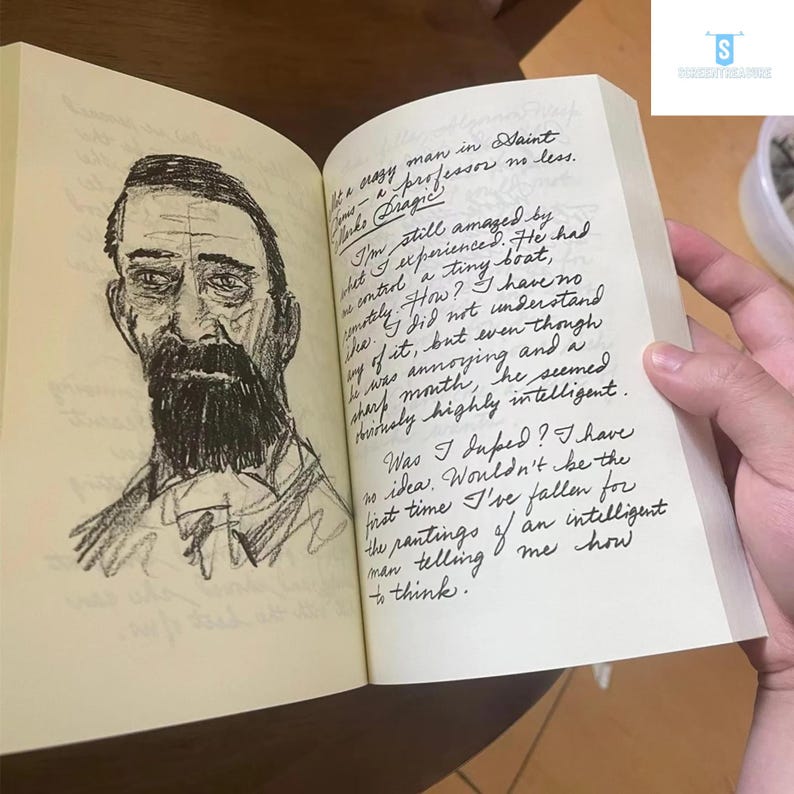 S
SCREENTREASURE
Met a crazy man in Saint
Denis — a professor no less.
Marko Dragic
I'm still amazed by
what I experienced. He had
me control a tiny boat,
remotely. How? I have no
idea. I did not understand
any of it, but even though
he was annoying and a
sharp mouth, he seemed
obviously highly intelligent.
Was I duped? I have
no idea. Wouldn't be the
first time I've fallen for
the rantings of an intelligent
man telling me how
to think.